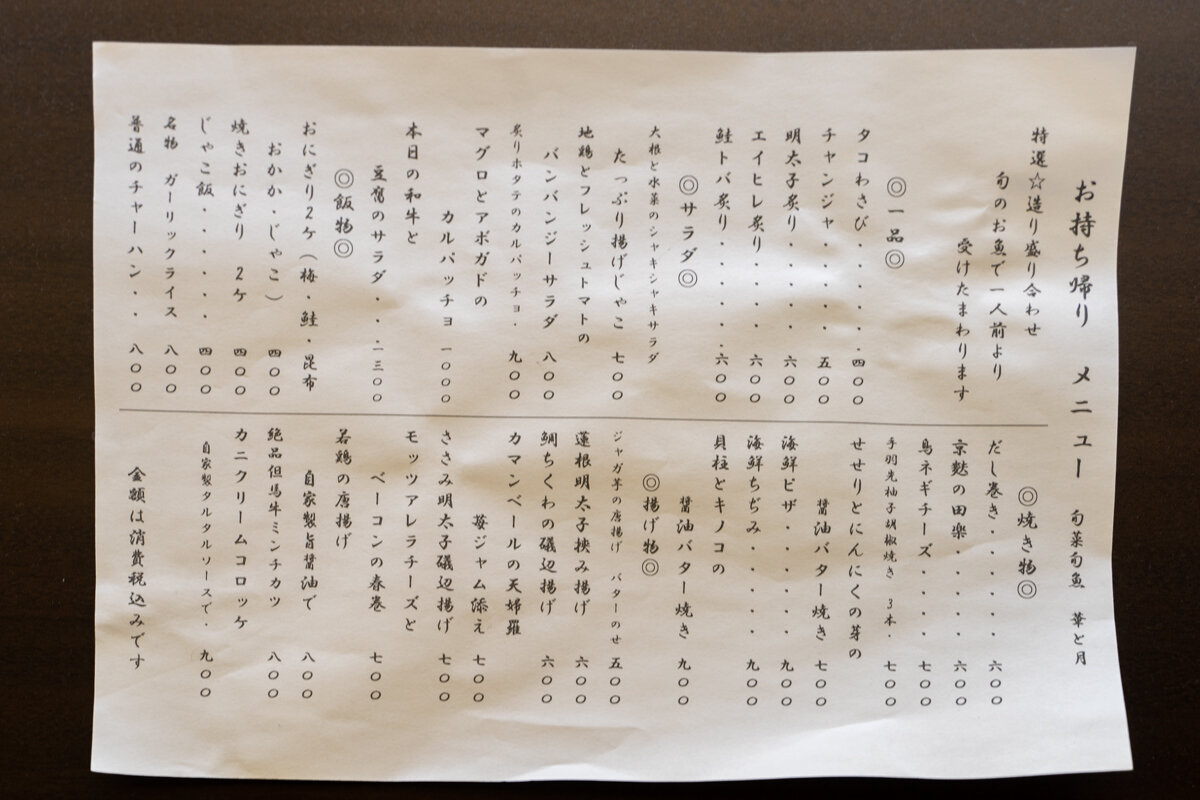 お持ち帰り メニュー 旬菜旬魚 華と月
特選☆造り盛り合わせ
旬のお魚で一人前より
受けたまわります
◎一品◎
タコわさび・・・・・四〇〇
チャンジャ・・・・五〇〇
明太子炙り・・・・六〇〇
エイヒレ炙り・・・・六〇〇
鮭トバ炙り・・・・・六〇〇
◎サラダ◎
大根と水菜のシャキシャキサラダ
たっぷり揚げじゃこ 七〇〇
地鶏とフレッシュトマトの
バンバンジーサラダ 八〇〇
炙りホタテのカルパッチョ・ 九〇〇
マグロとアボガドの
カルパッチョ 一〇〇〇
本日の和牛と
豆腐のサラダ・・・一三〇〇
◎飯物◎
おにぎり2ケ(梅・鮭・昆布
おかか・じゃこ) 四〇〇
焼きおにぎり 2ケ 四〇〇
じゃこ飯・・・・・・四〇〇
名物 ガーリックライス 八〇〇
普通のチャーハン・・ 八〇〇
◎焼き物◎
だし巻き・・・・・・六〇〇
京麩の田楽・・・・・六〇〇
鳥ネギチーズ・・・・七〇〇
手羽先柚子胡椒焼き 3本・ 七〇〇
せせりとにんにくの芽の
醤油バター焼き 七〇〇
海鮮ピザ・・・・・・九〇〇
海鮮ちぢみ・・・・・九〇〇
貝柱とキノコの
醤油バター焼き 九〇〇
◎揚げ物◎
ジャガ芋の唐揚げ バターのせ 五〇〇
蓮根明太子挟み揚げ 六〇〇
鯛ちくわの磯辺揚げ 六〇〇
カマンベールの天婦羅
苺ジャム添え 七〇〇
ささみ明太子磯辺揚げ 七〇〇
モッツアレラチーズと
ベーコンの春巻 七〇〇
若鶏の唐揚げ
自家製旨醤油で 八〇〇
絶品但馬牛ミンチカツ 八〇〇
カニクリームコロッケ
自家製タルタルソースで・ 九〇〇
金額は消費税込みです